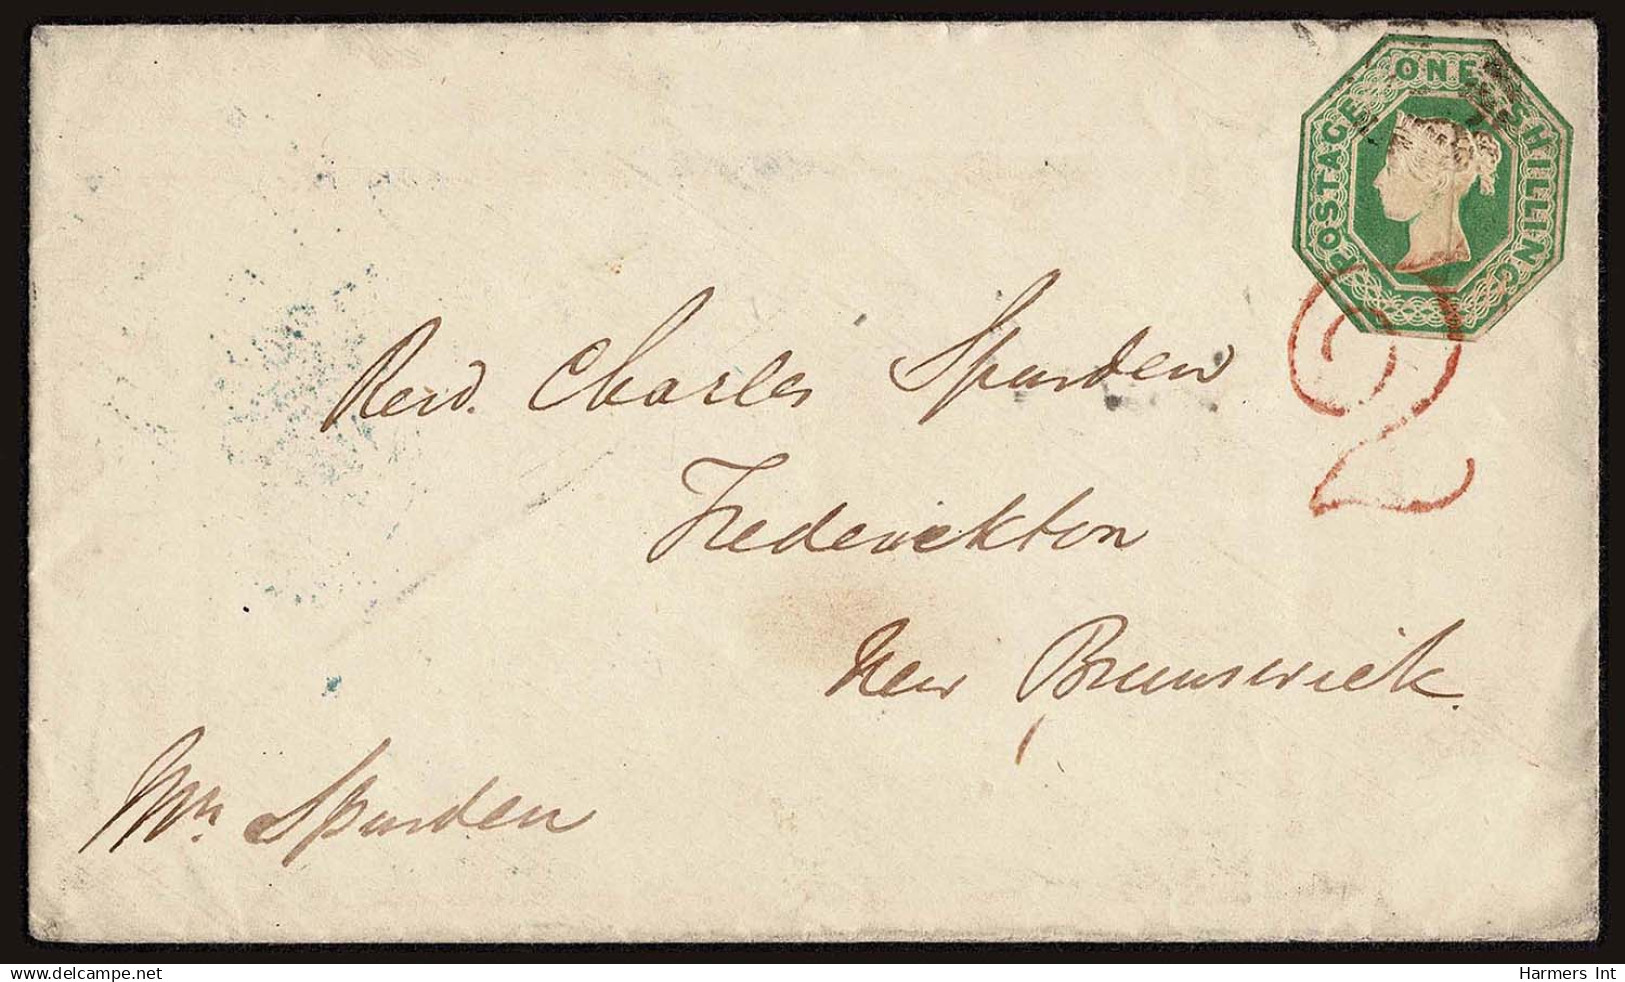 POSTAGE ONE SHILLING
2
Revd. Charles Spurden
Frederickton
New Brunswick.
Mr. Spurden
Harmers Int